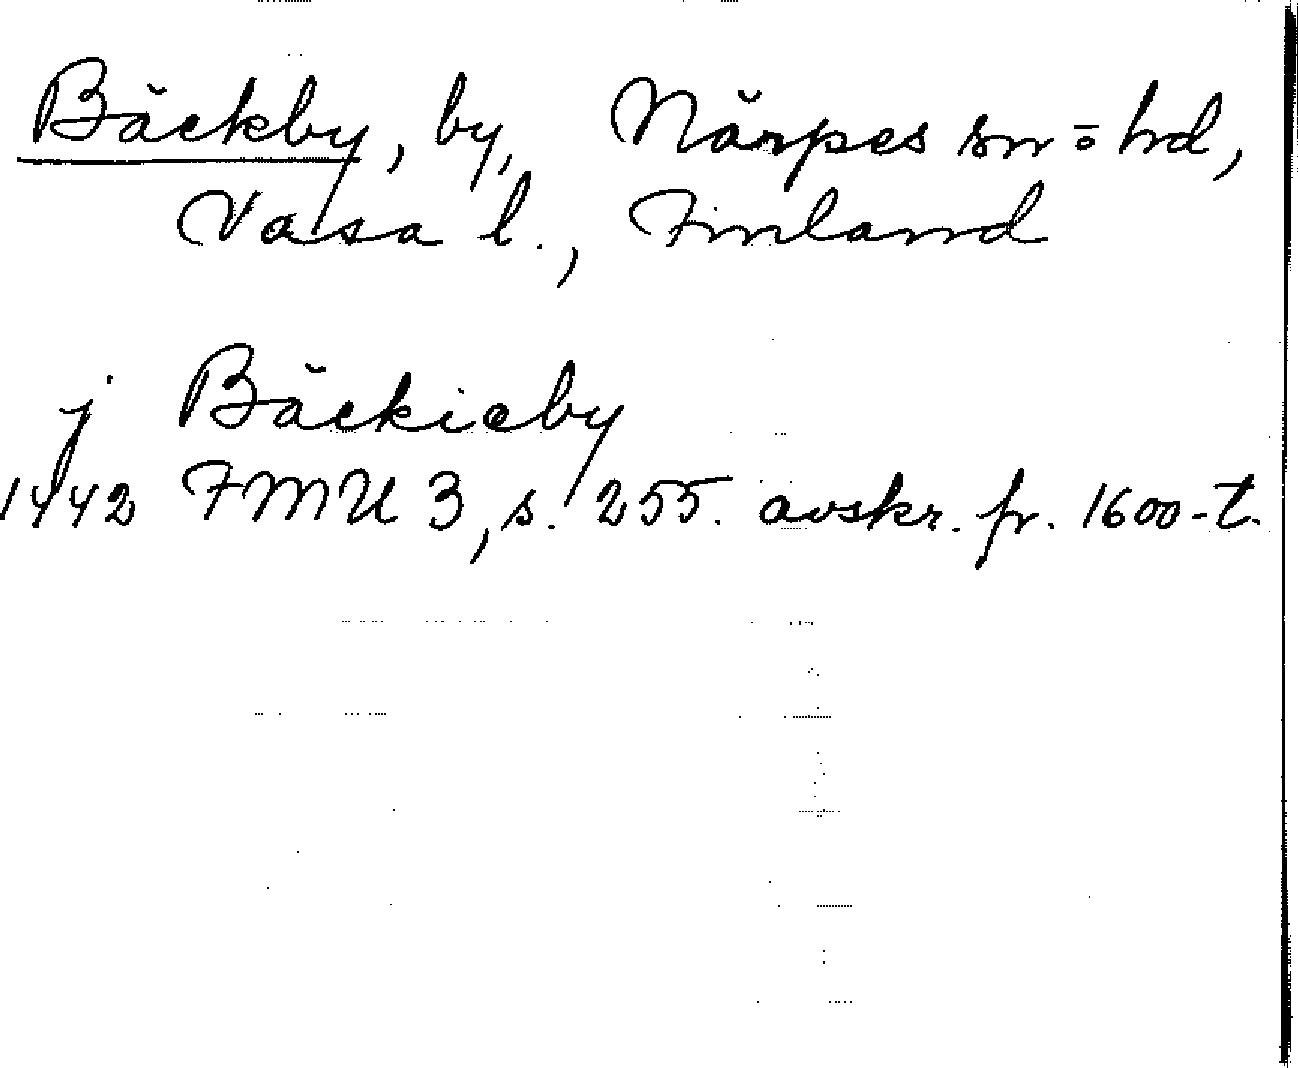 Bäckby, by, Närpes sn o hd,
Vasa l., Finland
j Bäckiaby
1442 FMU 3, s. 255. avskr. fr. 1600-t.